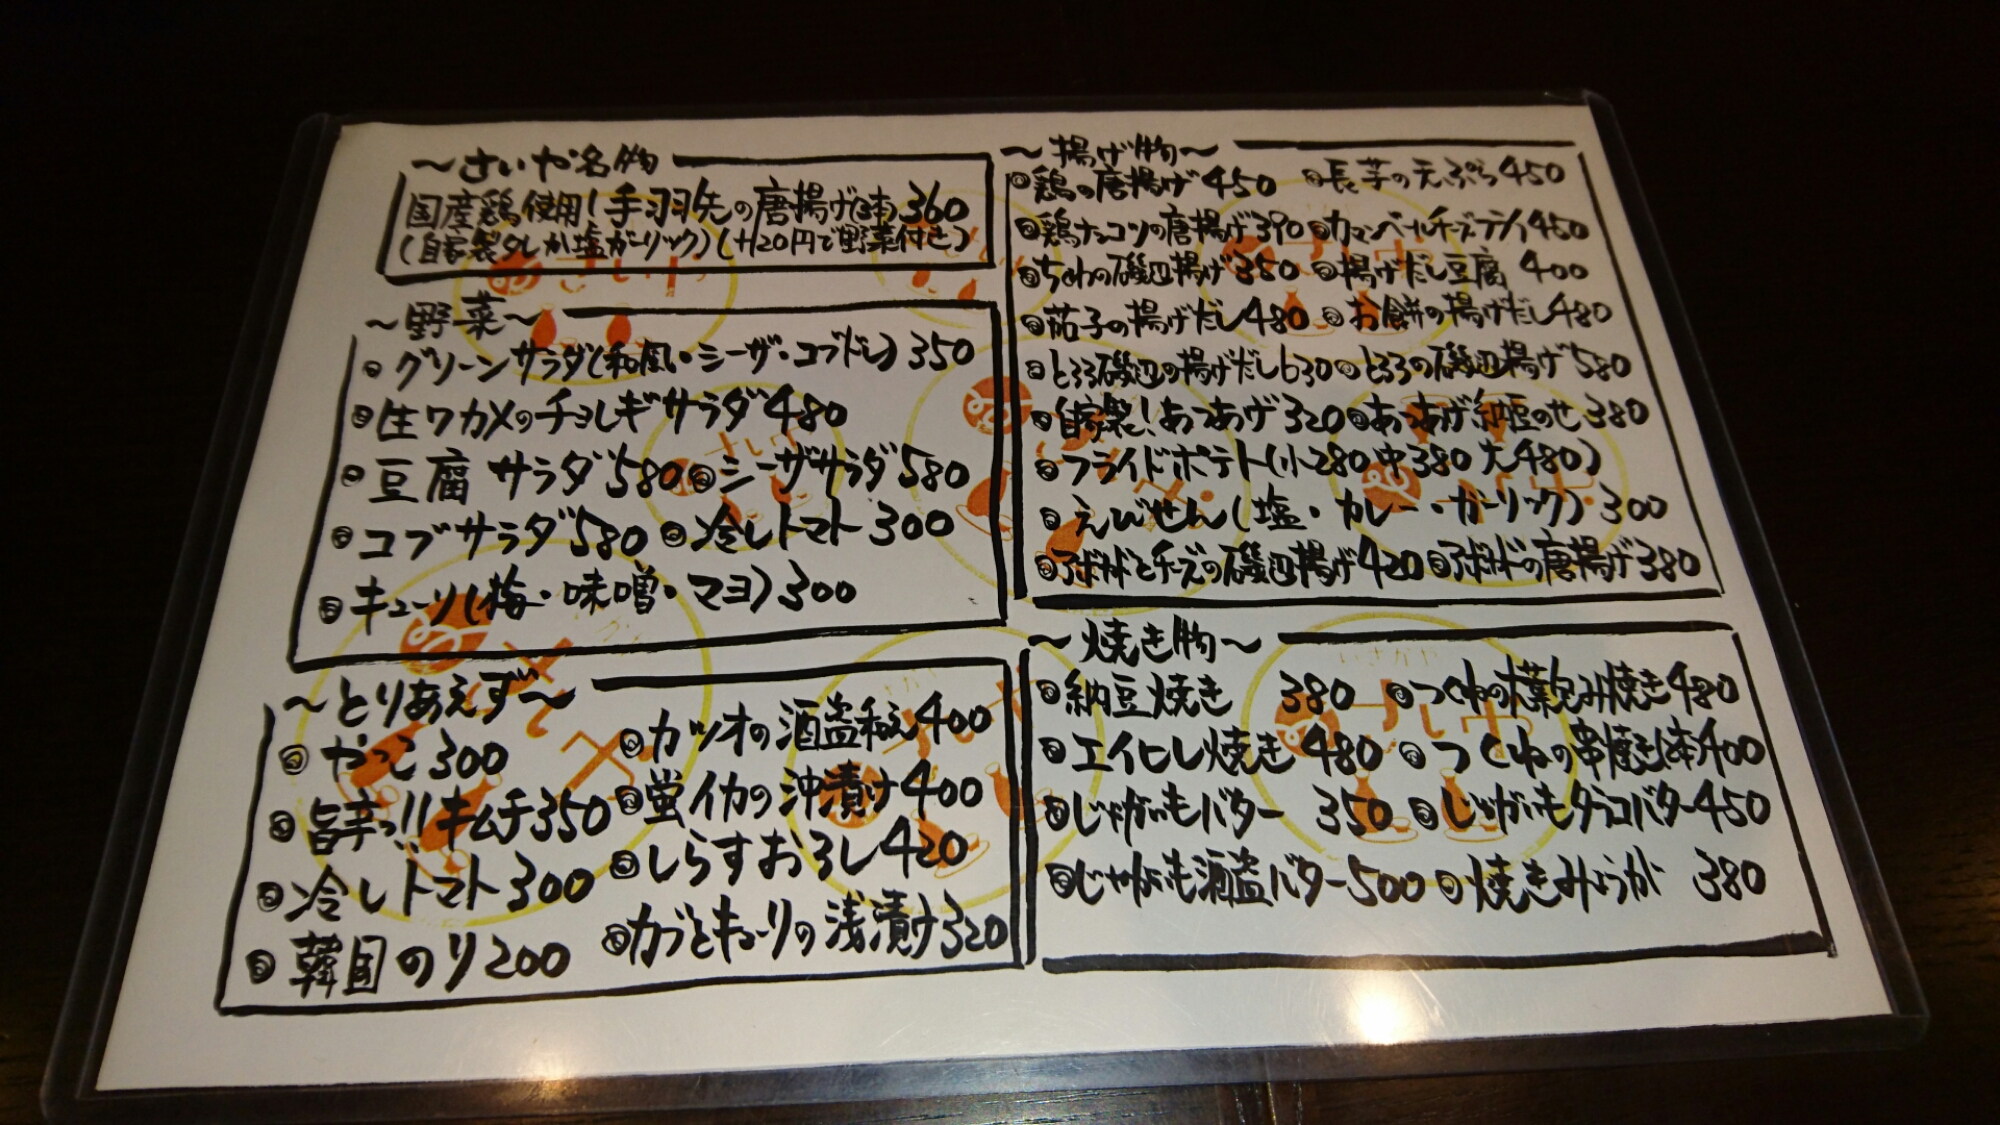 ～さいや名物
国産鶏使用!手羽先の唐揚げ(3本)360
(自家製タレか塩ガーリック)(+120円で野菜付き)
～野菜～
グリーンサラダ(和風・シーザ・コブドレ)350
生ワカメのチョレギサラダ480
豆腐サラダ580 シーザサラダ580
コブサラダ580 冷しトマト300
キューリ(梅・味噌・マヨ)300
～とりあえず～
やっこ300
旨辛っ!!キムチ350
冷しトマト300
韓国のり200
カツオの酒盗和え400
蛍イカの沖漬け400
しらすおろし420
カブとキューリの浅漬け320
～揚げ物～
鶏の唐揚げ450 長芋の天ぷら450
鶏ナンコツの唐揚げ390 カマンベールチーズテン450
ちくわの磯辺揚げ350 揚げだし豆腐 400
茄子の揚げだし480 お餅の揚げだし480
とろろ磯辺の揚げだし630 とろろの磯辺揚げ580
自家製!あつあげ320 あつあげ納豆のせ380
フライドポテト(小280中380大480)
えびせん(塩・カレー・ガーリック)300
アボカドとチーズの磯辺揚げ420 アボカドの唐揚げ380
～焼き物～
納豆焼き 380 つくねの大葉包み焼き480
エイヒレ焼き 480 つくねの串焼き(2本)400
じゃがいもバター 350 じゃがいもタラコバター450
じゃがいも酒盗バター500 焼きみょうが 380